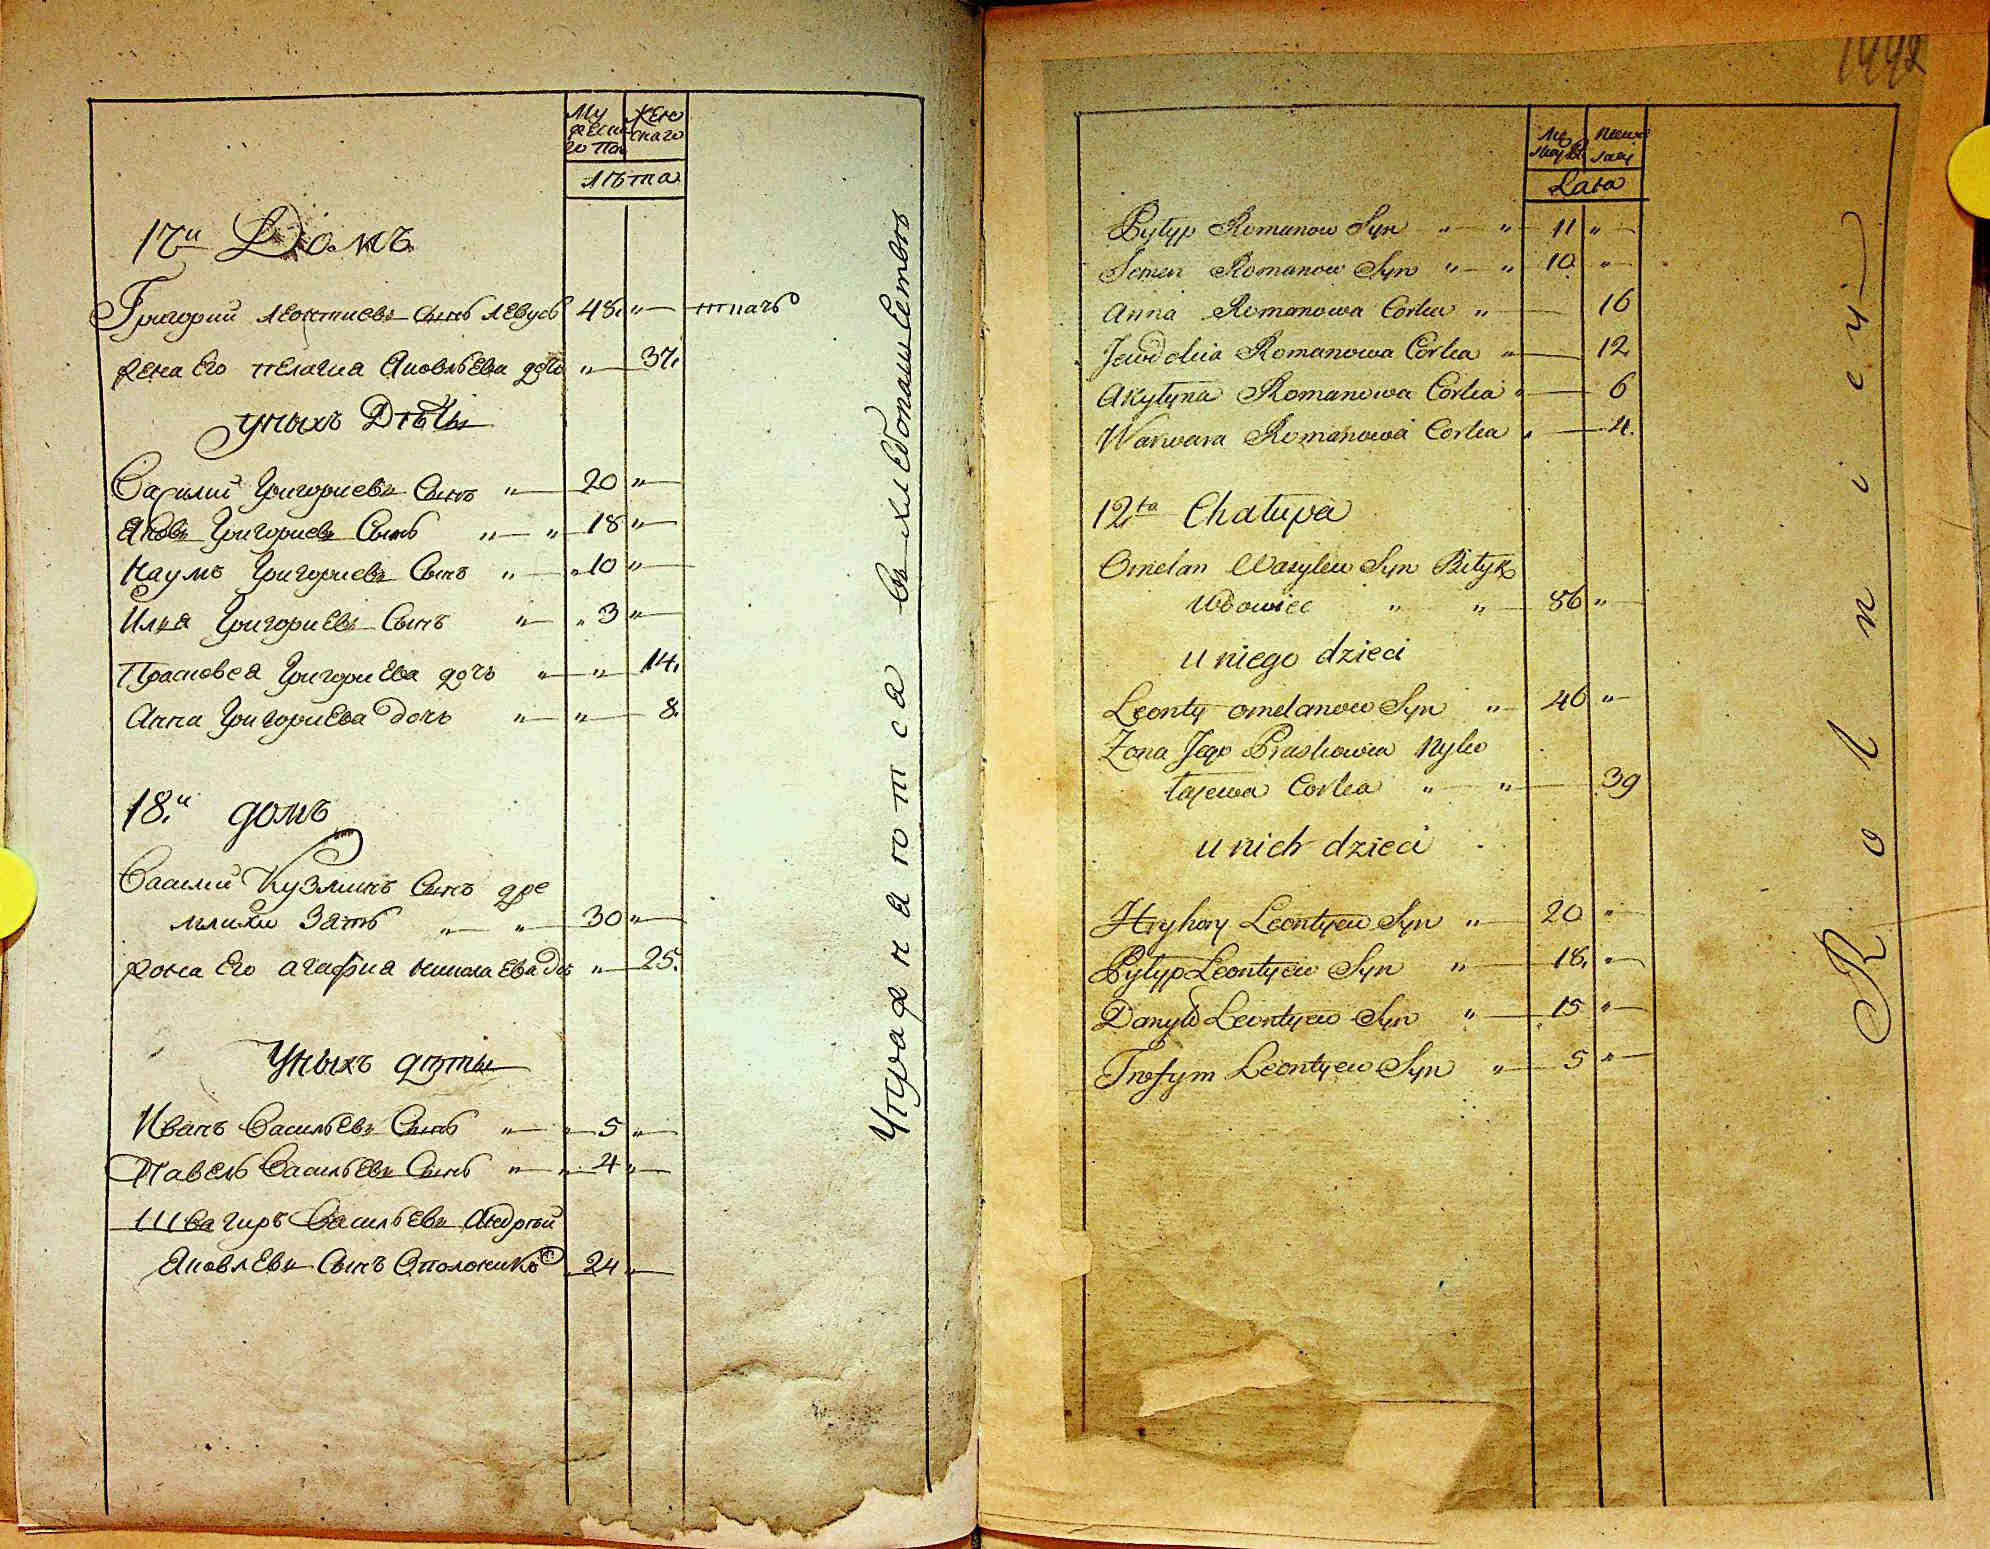 Му
жеска
го пол
Жен
скаго
лѣта
17й Домъ
Григорий Леонтиевъ Сынъ Левусъ 48. " ткачъ
жена Его пелагиа Яковлѣва дочь " 37.
уныхъ Дѣти
Василий Григориевъ Сынъ " 20 "
Яковъ Григориевъ Сынъ " " 18 "
Наумъ Григориевъ Сынъ " " 10 "
Илиа Григориевъ Сынъ " " 3 "
Прасковеа Григориева дочъ " " 14.
Анна Григориева дочъ " " 8.
18.й домъ
Василий Кузминъ Сынъ дре
млихи Зять " " 30 "
жона Его агафиа николаева доч " 25.
Уныхъ дѣти
Иванъ Василъевъ Сынъ " " 5 "
Павелъ Василъевъ Сынъ " " 4 "
Швагиръ Василъевъ Андрѣй
Яковлевъ Сынъ 24 "
Упражняютса въ хлебопашестве
1442
Mę
skiej
Lata
Pylyp Romanow Syn " " 11 "
Semen Romanow Syn " " 10 "
Anna Romanowa Corka " 16
Jewdokia Romanowa Corka " 12
Akylyna Romanowa Corka " 6
Warwara Romanowa Corka " 4.
12ta Chałupa
Omelan Wasylew Syn
Wdowiec " " 86 "
u niego dzieci
Leonty omelanow Syn " 46 "
Zona Jego Praskowia Nyko
łajewa Corka " " 39
u nich dzieci
Hryhory Leontyew Syn " 20 "
Pylyp Leontyew Syn " 18. "
Danyło Leontyew Syn " 15 "
Trofym Leontyew Syn " 5 "
Rolnicy